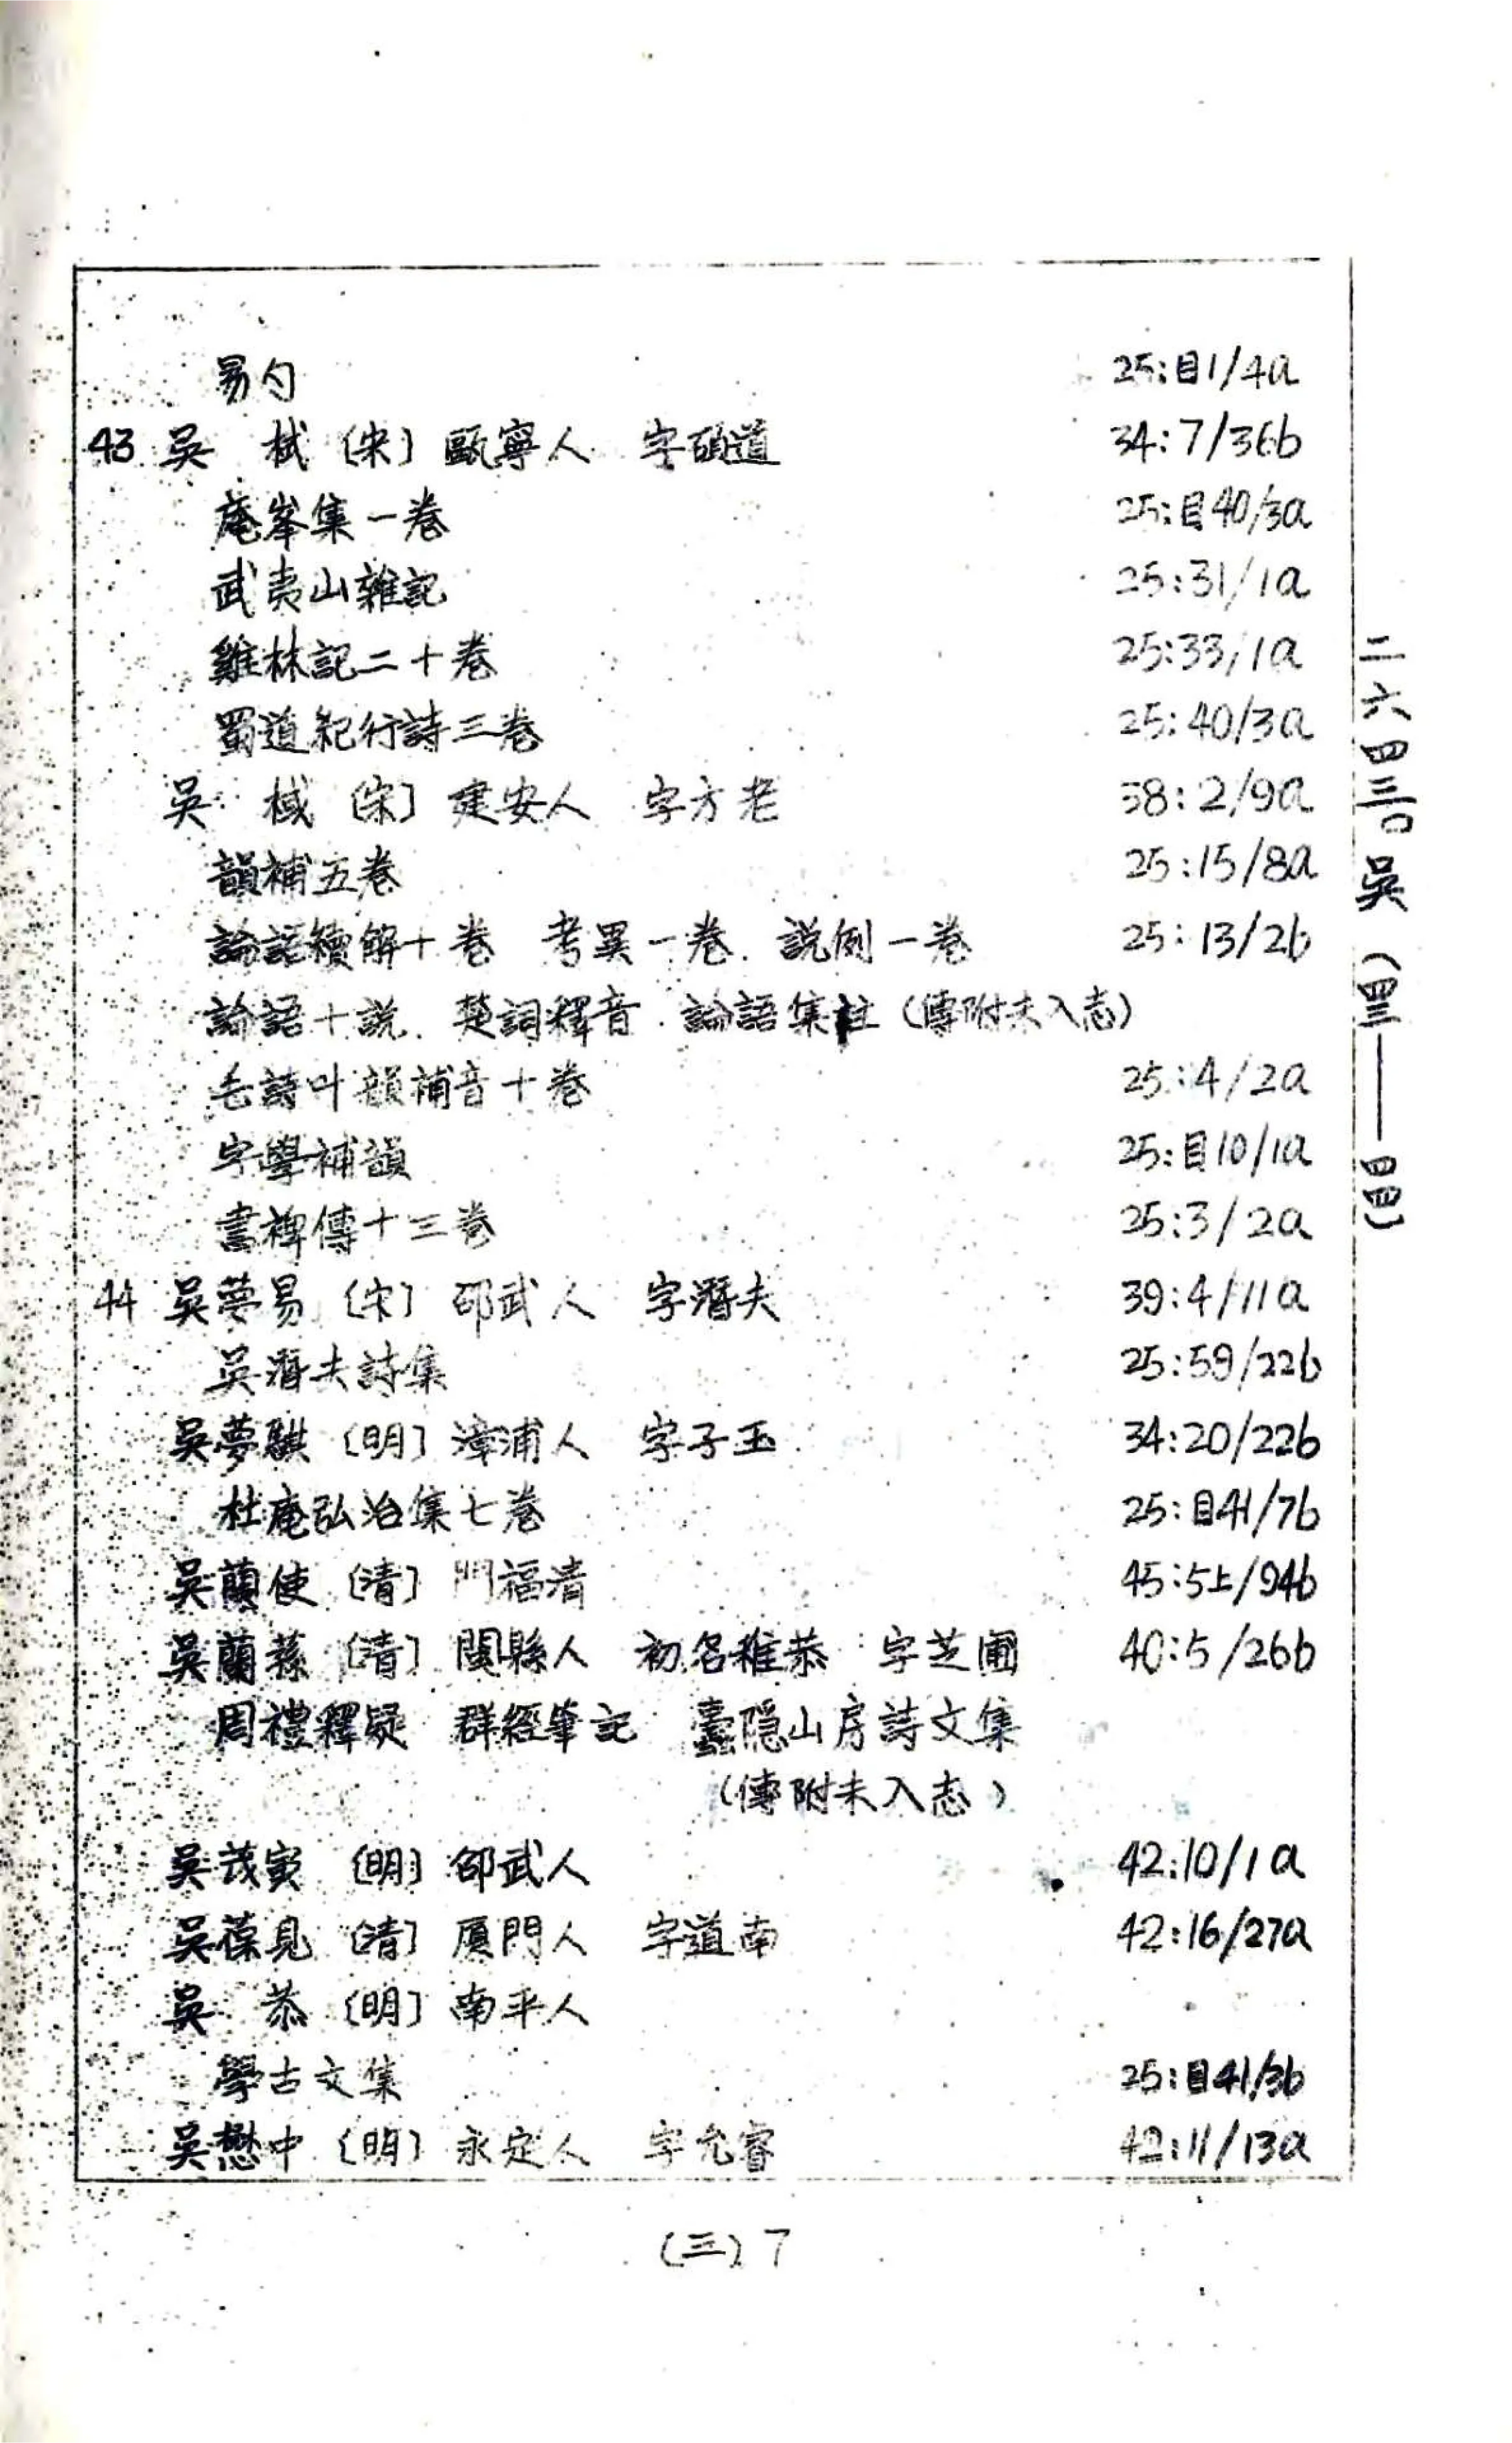 易勺 25:目1/4a
43 吳 栻〔宋〕甌寧人 字碩道 34:7/36b
庵峯集一卷 25:目40/3a
武夷山雜記 25:31/1a
雞林記二十卷 25:33/1a
蜀道紀行詩三卷 25:40/3a
吳 棫〔宋〕建安人 字方老 38:2/9a
韻補五卷 25:15/8a
論語續解十卷 考異一卷 說例一卷 25:13/2b
論語十說 楚詞釋音 論語集註（傳附未入志）
毛詩叶韻補音十卷 25:4/2a
字學補韻 25:目10/1a
書裨傳十三卷 25:3/2a
44 吳夢易〔宋〕邵武人 字潛夫 39:4/11a
吳潛夫詩集 25:59/22b
吳夢騏〔明〕漳浦人 字子玉 34:20/22b
杜庵弘治集七卷 25:目41/7b
吳蘭使〔清〕門福清 45:5上/94b
吳蘭蓀〔清〕閩縣人 初名稚恭 字芝圃 40:5/26b
周禮釋疑 群經筆記 蠹隱山房詩文集
（傳附未入志）
吳茂寅〔明〕邵武人 42:10/1a
吳葆見〔清〕厦門人 字道南 42:16/27a
吳 恭〔明〕南平人
學古文集 25:目41/3b
吳懋中〔明〕永定人 字允睿 42:11/13a
二六四三〇 吳（四三——四四）
（三）7